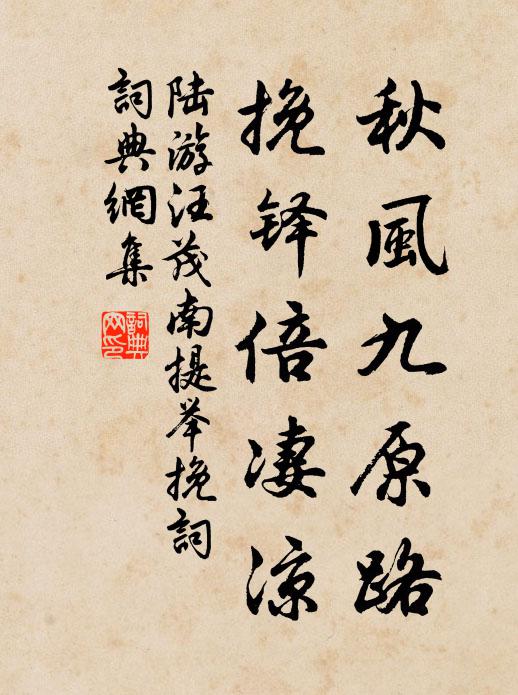 秋風九原路
挽铎倍凄涼
陆游汪茂南提举挽詞
詞典網集
詞典网印